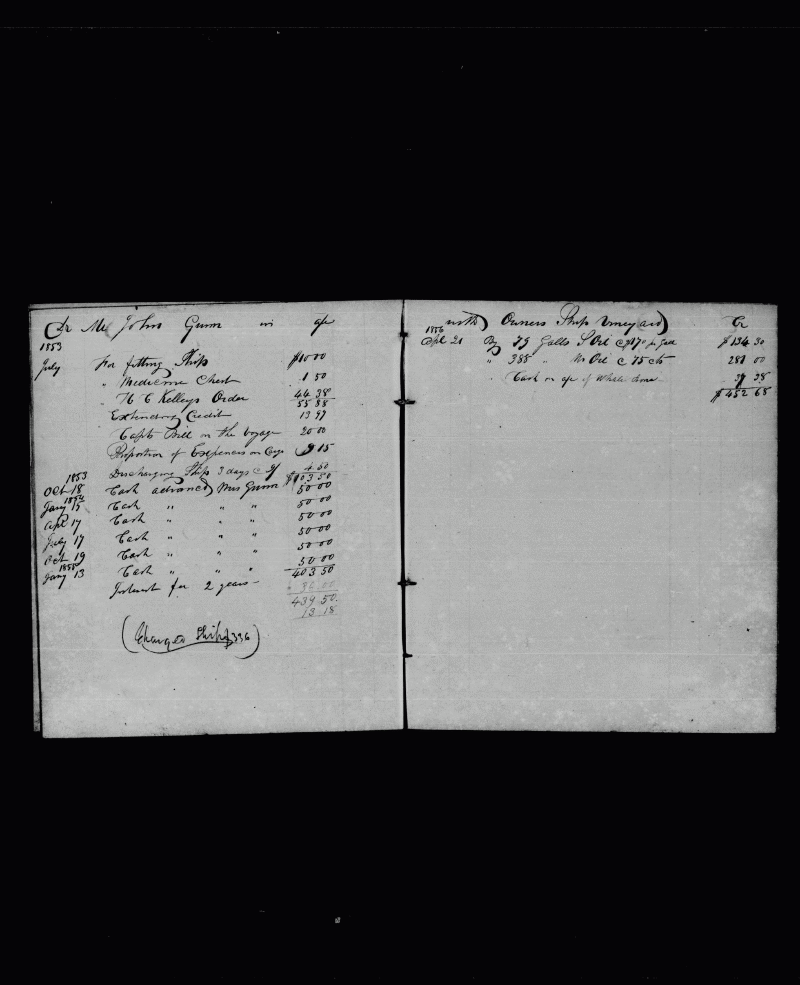 Dr Mr John Gunn in a/c
1853
July For fitting Ship $10 00
" Medicine Chest 1 50
" H C Kelleys Order 44 38
55 88
Extending Credit 13 97
Capts Bill on the Voyage 20 00
Proportion of Expences on Cargo 9 15
Discharging Ship 3 days 4 50
$103 50
1853
Oct 18 Cash advanced Mrs Gunn 50 00
1854
Jany 15 Cash " " " 50 00
Apl 17 Cash " " " 50 00
July 17 Cash " " " 50 00
Oct 19 Cash " " " 50 00
1855
Jany 13 Cash " " " 50 00
403 50
Interest for 2 years 36 00
439 50
13 18
(Charged Ship 336)
with Owners Ship Vineyard Cr
1856
Apl 21 By 79 Galls S Oil @ $1.70 pr Gall $134 30
" 388 " W Oil @ 75 cts 281 00
" Cash on a/c of Whale bone 37 38
$452 68